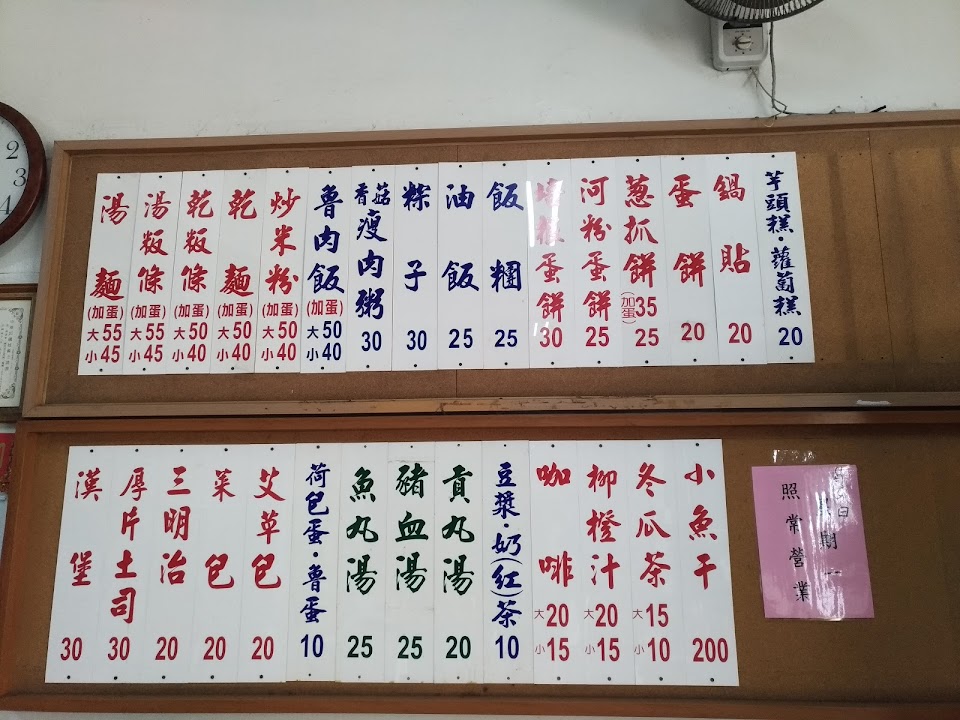 湯麵(加蛋)大55小45
湯粄條(加蛋)大55小45
乾粄條(加蛋)大50小40
乾麵(加蛋)大50小40
炒米粉(加蛋)大50小40
魯肉飯(加蛋)大50小40
香菇瘦肉粥30
粽子30
油飯25
飯糰25
培根蛋餅30
河粉蛋餅25
蔥抓餅(加蛋)35 25
蛋餅20
鍋貼20
芋頭糕·蘿蔔糕20
漢堡30
厚片土司30
三明治20
菜包20
艾草包20
荷包蛋·魯蛋10
魚丸湯25
豬血湯25
貢丸湯20
豆漿·奶(紅)茶10
咖啡大20小15
柳橙汁大20小15
冬瓜茶大15小10
小魚干200
日
期一
照常營業
2
3
4